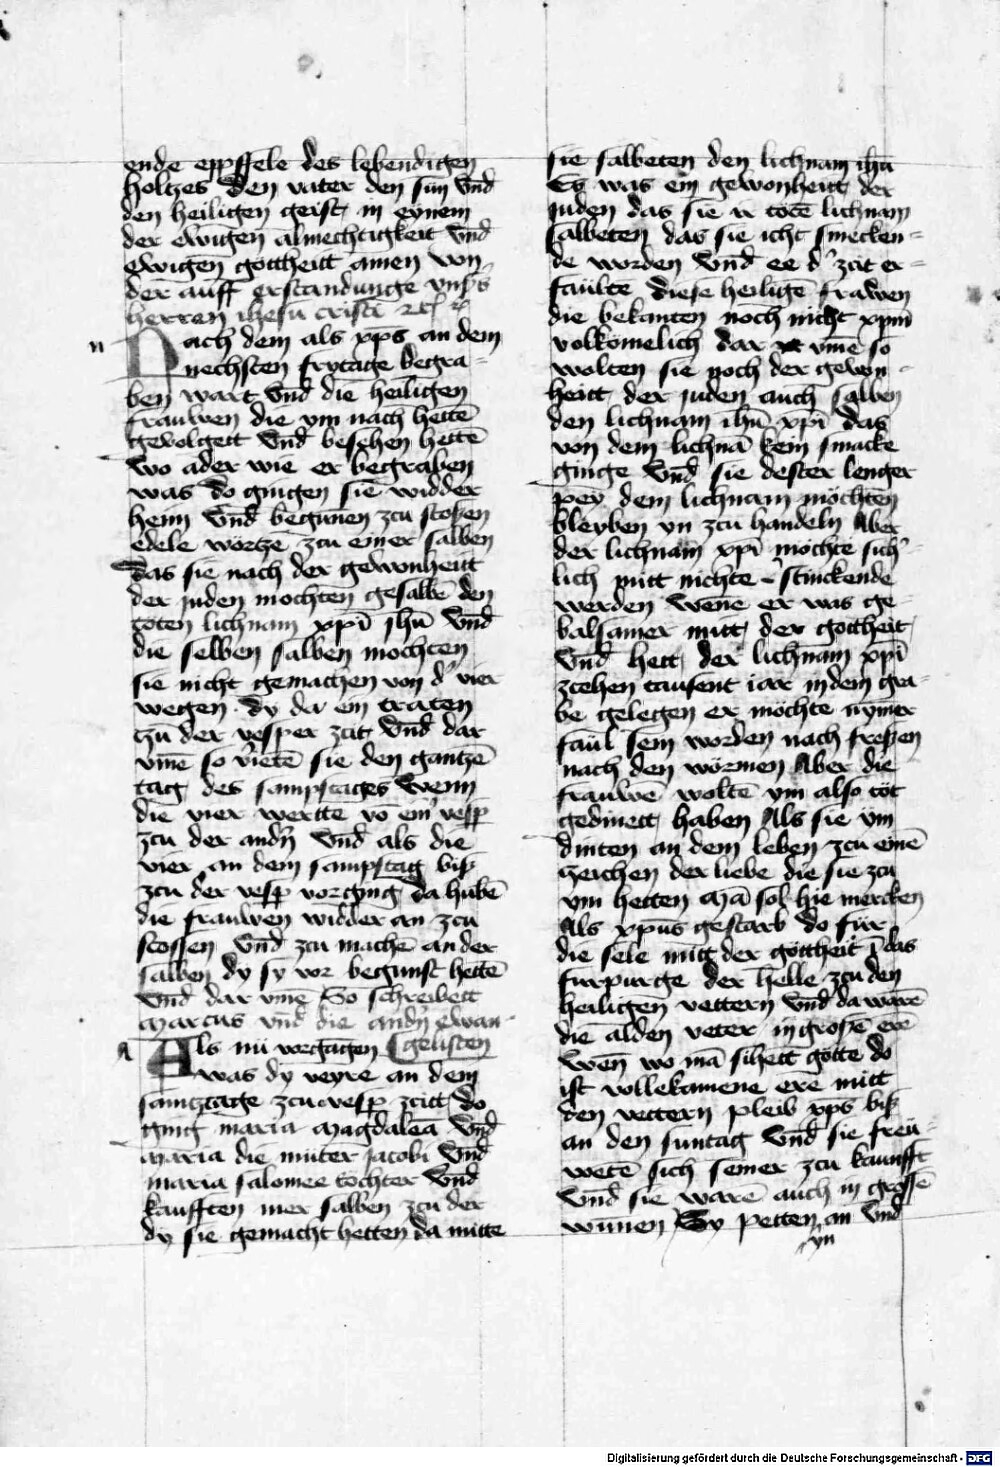 ende eppffele des lebendigen
holtzes Den vater den sun vnd
den heiligen geist in eynem
der ewigen almechtigkeit vnd
ewigen gottheitt amen von
der auff erstandunge vnsers
herren ihesu cristi
n
Nach dem als xp̄s an dem
nechsten frytage begra-
ben wart vnd die heiligen
frauwen die ym nach hettē
gevolgett vnd besehen hettē
wo ader wie er begraben
was do gingen sie widder
heim vnd begunen zcu stoßen
edele wortze zcu einer salben
das sie nach der gewonheitt
der juden mochten gesalbē den
toten lichnam xp̄i jhū vnd
die selben salben mochten
sie nicht gemachen von d' vier
wegen dy da ein traten
zu der vesper zcit vnd dar
vmē so vietē sie den gantzē
tag des sampstages Wenn
die vier wertte vō ein' vesp
zcu der andn̄ vnd als die
vier an dem sampstag biß
zcu der vesp vorging da hubē
die frauwen widder an zcu
stossen vnd zcu machē an der
salben dy sy vor begunst hettē
vnd dar vmē So schreibett
Marcus vnd die andn̄ ewan-
gelisten
a
Als nu vorgangen
was dy veyre an dem
samtztage zcu vesp zcitt do
ging maria magdalēa vnd
maria die muter Jacobi vnd
maria salomee tochter vnd
kaufften mer salben zcu der
dy sie gemacht hetten da mitte
sie salbeten den lichnam ihū
Es was ein gewonheitt der
juden das sie ir totē lichnam
salbeten das sie icht smecken-
de worden vnd ee d' zcit er-
faulte diese heiligē frawen
die bekanten noch nicht xpm̄
volkomelich dar vmē so
wolten sie noch der gewon-
heitt der juden auch salben
den lichnam ihū xp̄i das
von dem lichnā kein smacke
ginge vnd sie dester lenger
pey dem lichnam möchten
bleyben yn zcu handeln Aber
der lichnam xp̄i möchte sich'-
lich mitt nichte stinckende
werden wenē er was ge-
balsamer mitt der gottheit
vnd hett der lichnam xp̄i
zcehen tausent iar in dem gra-
be gelegen er möchte nymer
faul sein worden nach freßen
nach den wörmen Aber die
frauwē woltē ym also tot
gedinett haben Als sie ym
dinten an dem leben zcu einē
zeichen der liebe die sie zcu
ym hetten Mā sol hie mercken
Als xpūs gestarb do fur
die sele mitt der gottheit das
furpurge der helle zcu den
heiligen vettern vnd da warē
die alden veter in großē erē
Wen wo mā sihett gotte do
ist vollekamene erē mitt
den vettern pleib xp̄s biß
an den suntag vnd sie freu-
wetē sich seiner zcu kaunfft
vnd sie warē auch in grossē
wunen Sy petten an vnd
yn
Digitalisierung gefördert durch die Deutsche Forschungsgemeinschaft - DFG